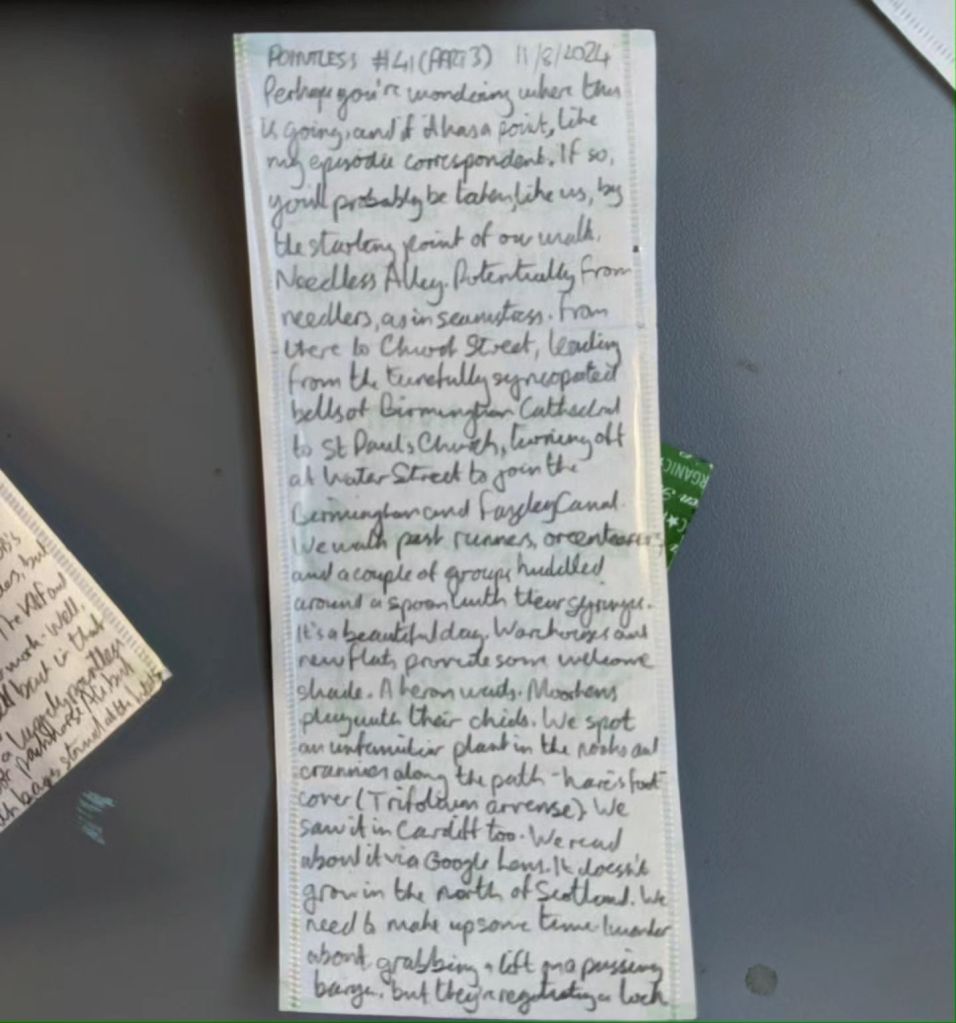 POINTLESS #41 (PART 3) 11/8/2024
Perhaps you're wondering where this
is going, and if it has a point, like
my episodic correspondent. If so,
you'll probably be taken, like us, by
the starting point of our walk,
Needless Alley. Potentially from
needlers, as in seamstress. From
there to Church Street, leading
from the tunefully syncopated
bells of Birmingham Cathedral
to St Paul's Church, turning off
at Water Street to join the
Birmingham and Fazeley Canal.
We walk past runners, orienteerers
and a couple of groups huddled
around a spoon with their syringes.
It's a beautiful day. Warehouses and
new flats provide some welcome
shade. A heron wades. Moorhens
play with their chicks. We spot
an unfamiliar plant in the nooks and
crannies along the path - hare's foot
cover (Trifolium arvense). We
saw it in Cardiff too. We read
about it via Google Lens. It doesn't
grow in the north of Scotland. We
need to make up some time. I wonder
about grabbing a lift on a passing
barge, but they're negotiating a lock
ORGANIC
but
The
work. Well,
in that
a
pointless